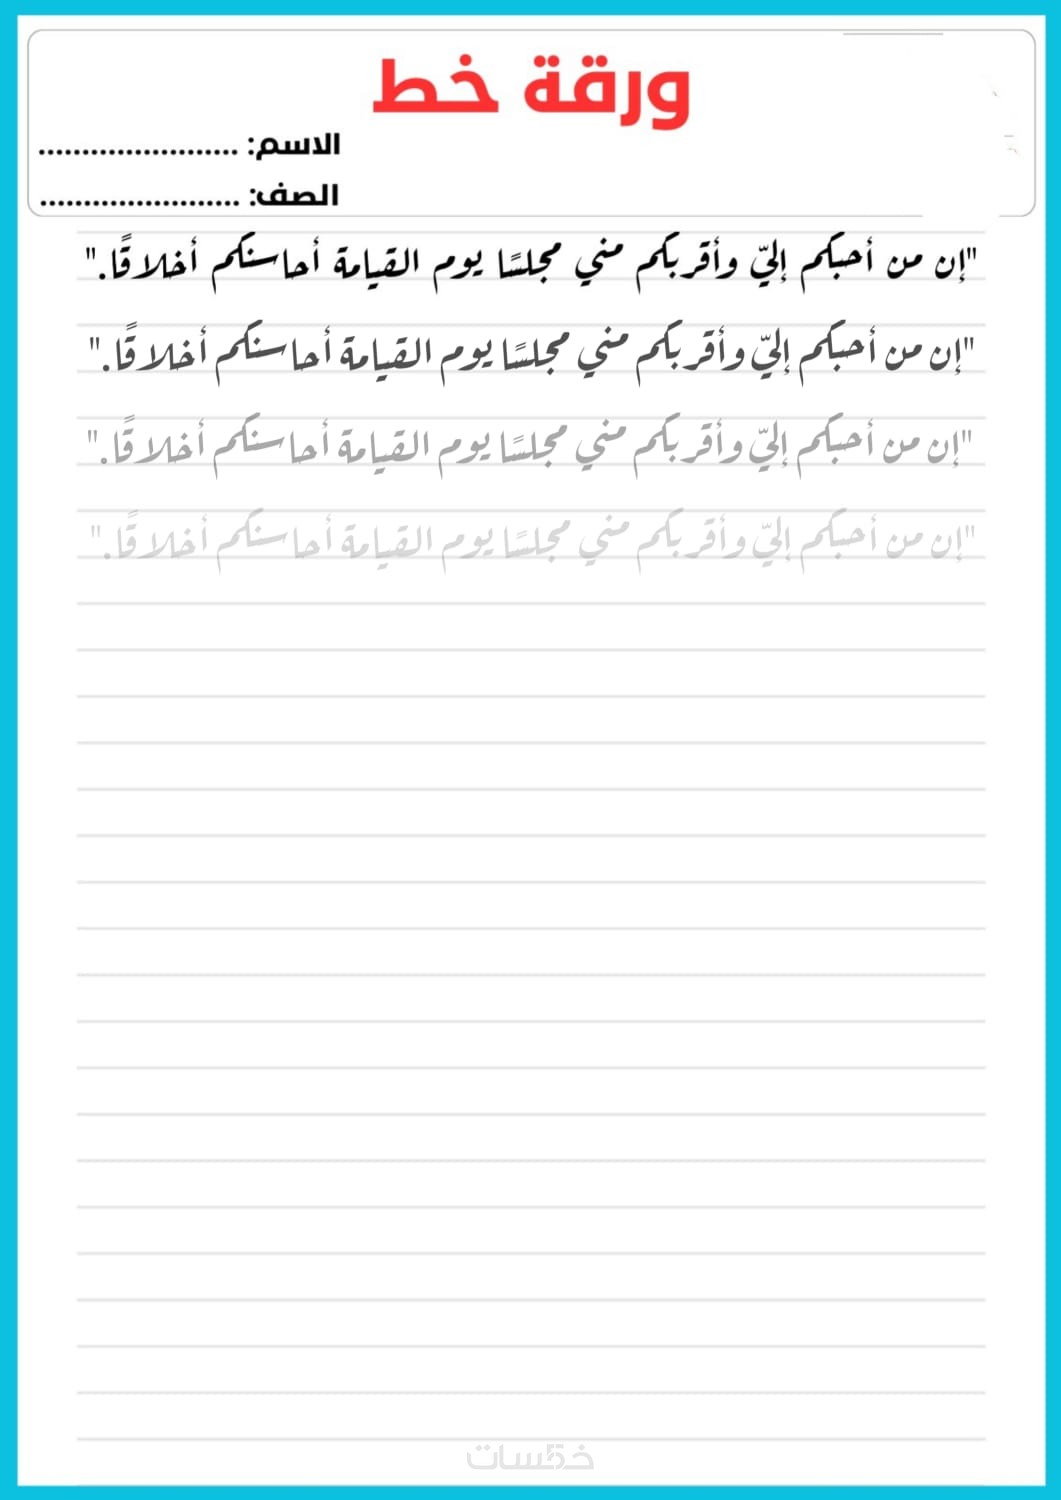 ورقة خط
الاسم: .......................
الصف: .......................
"إن من أحبكم إليّ وأقربكم مني مجلسًا يوم القيامة أحاسنكم أخلاقًا."
"إن من أحبكم إليّ وأقربكم مني مجلسًا يوم القيامة أحاسنكم أخلاقًا."
"إن من أحبكم إليّ وأقربكم مني مجلسًا يوم القيامة أحاسنكم أخلاقًا."
"إن من أحبكم إليّ وأقربكم مني مجلسًا يوم القيامة أحاسنكم أخلاقًا."
خمسات